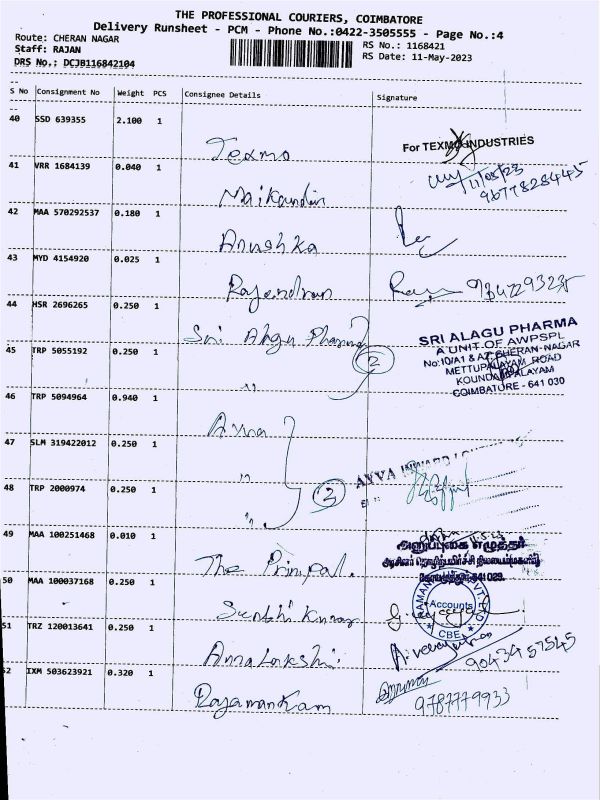 THE PROFESSIONAL COURIERS, COIMBATORE
Delivery Runsheet - PCM - Phone No.:0422-3505555 - Page No.:4
Route: CHERAN NAGAR
RS No.: 1168421
Staff: RAJAN
RS Date: 11-May-2023
DRS No.: DCJB116842104
S No Consignment No Weight PCS Consignee Details Signature
40 SSD 639355 2.100 1
Texmo
For TEXMO INDUSTRIES
11/05/23
9677828445
41 VRR 1684139 0.040 1
42 MAA 570292537 0.180 1
Anushka
43 MYD 4154920 0.025 1
Rajendran
44 HSR 2696265 0.250 1
Sri Alagu Pharma
2
SRI ALAGU PHARMA
A UNIT OF AWPSPL
No:10/A1 & A2 CHERAN-NAGAR
METTUPALAYAM ROAD
KOUNDAMPALAYAM
COIMBATURE - 641 030
45 TRP 5055192 0.250 1
"
46 TRP 5094964 0.940 1
47 SLM 319422012 0.250 1
"
3
48 TRP 2000974 0.250 1
"
49 MAA 100251468 0.010 1
The Prinipal.
50 MAA 100037168 0.250 1
Accounts
CBE
51 TRZ 120013641 0.250 1
9043457545
52 IXM 503623921 0.320 1
Rajamankam
9787779933